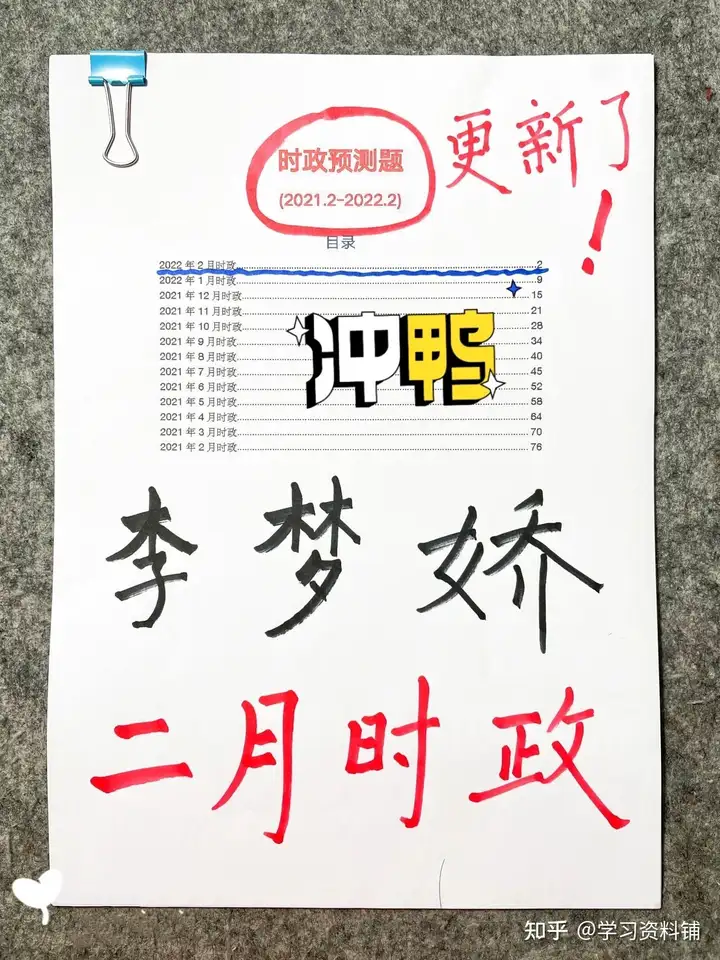 时政预测题
更新了
(2021.2-2022.2)
！
目录
2022 年 2 月时政........2
2022 年 1 月时政........9
2021 年 12 月时政........15
2021 年 11 月时政........21
2021 年 10 月时政........28
2021 年 9 月时政........34
2021 年 8 月时政........40
2021 年 7 月时政........45
2021 年 6 月时政........52
2021 年 5 月时政........58
2021 年 4 月时政........64
2021 年 3 月时政........70
2021 年 2 月时政........76
冲鸭
李梦娇
二月时政
知乎 @学习资料铺